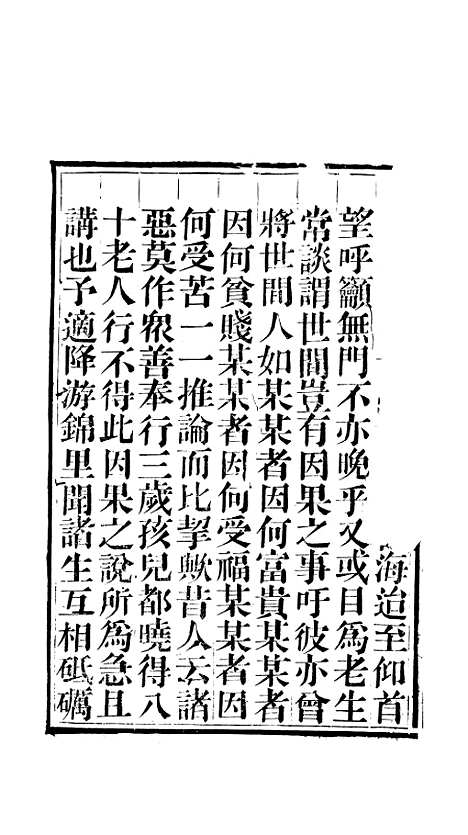 海迨至仰首
望呼籲無門不亦晚乎又或目爲老生
常談謂世間豈有因果之事吁彼亦曾
將世間人如某某者因何富貴某某者
因何貧賤某某者因何受福某某者因
何受苦一一推論而比挈歟昔人云諸
惡莫作衆善奉行三歲孩兒都曉得八
十老人行不得此因果之說所爲急且
講也予適降游錦里聞諸生互相砥礪